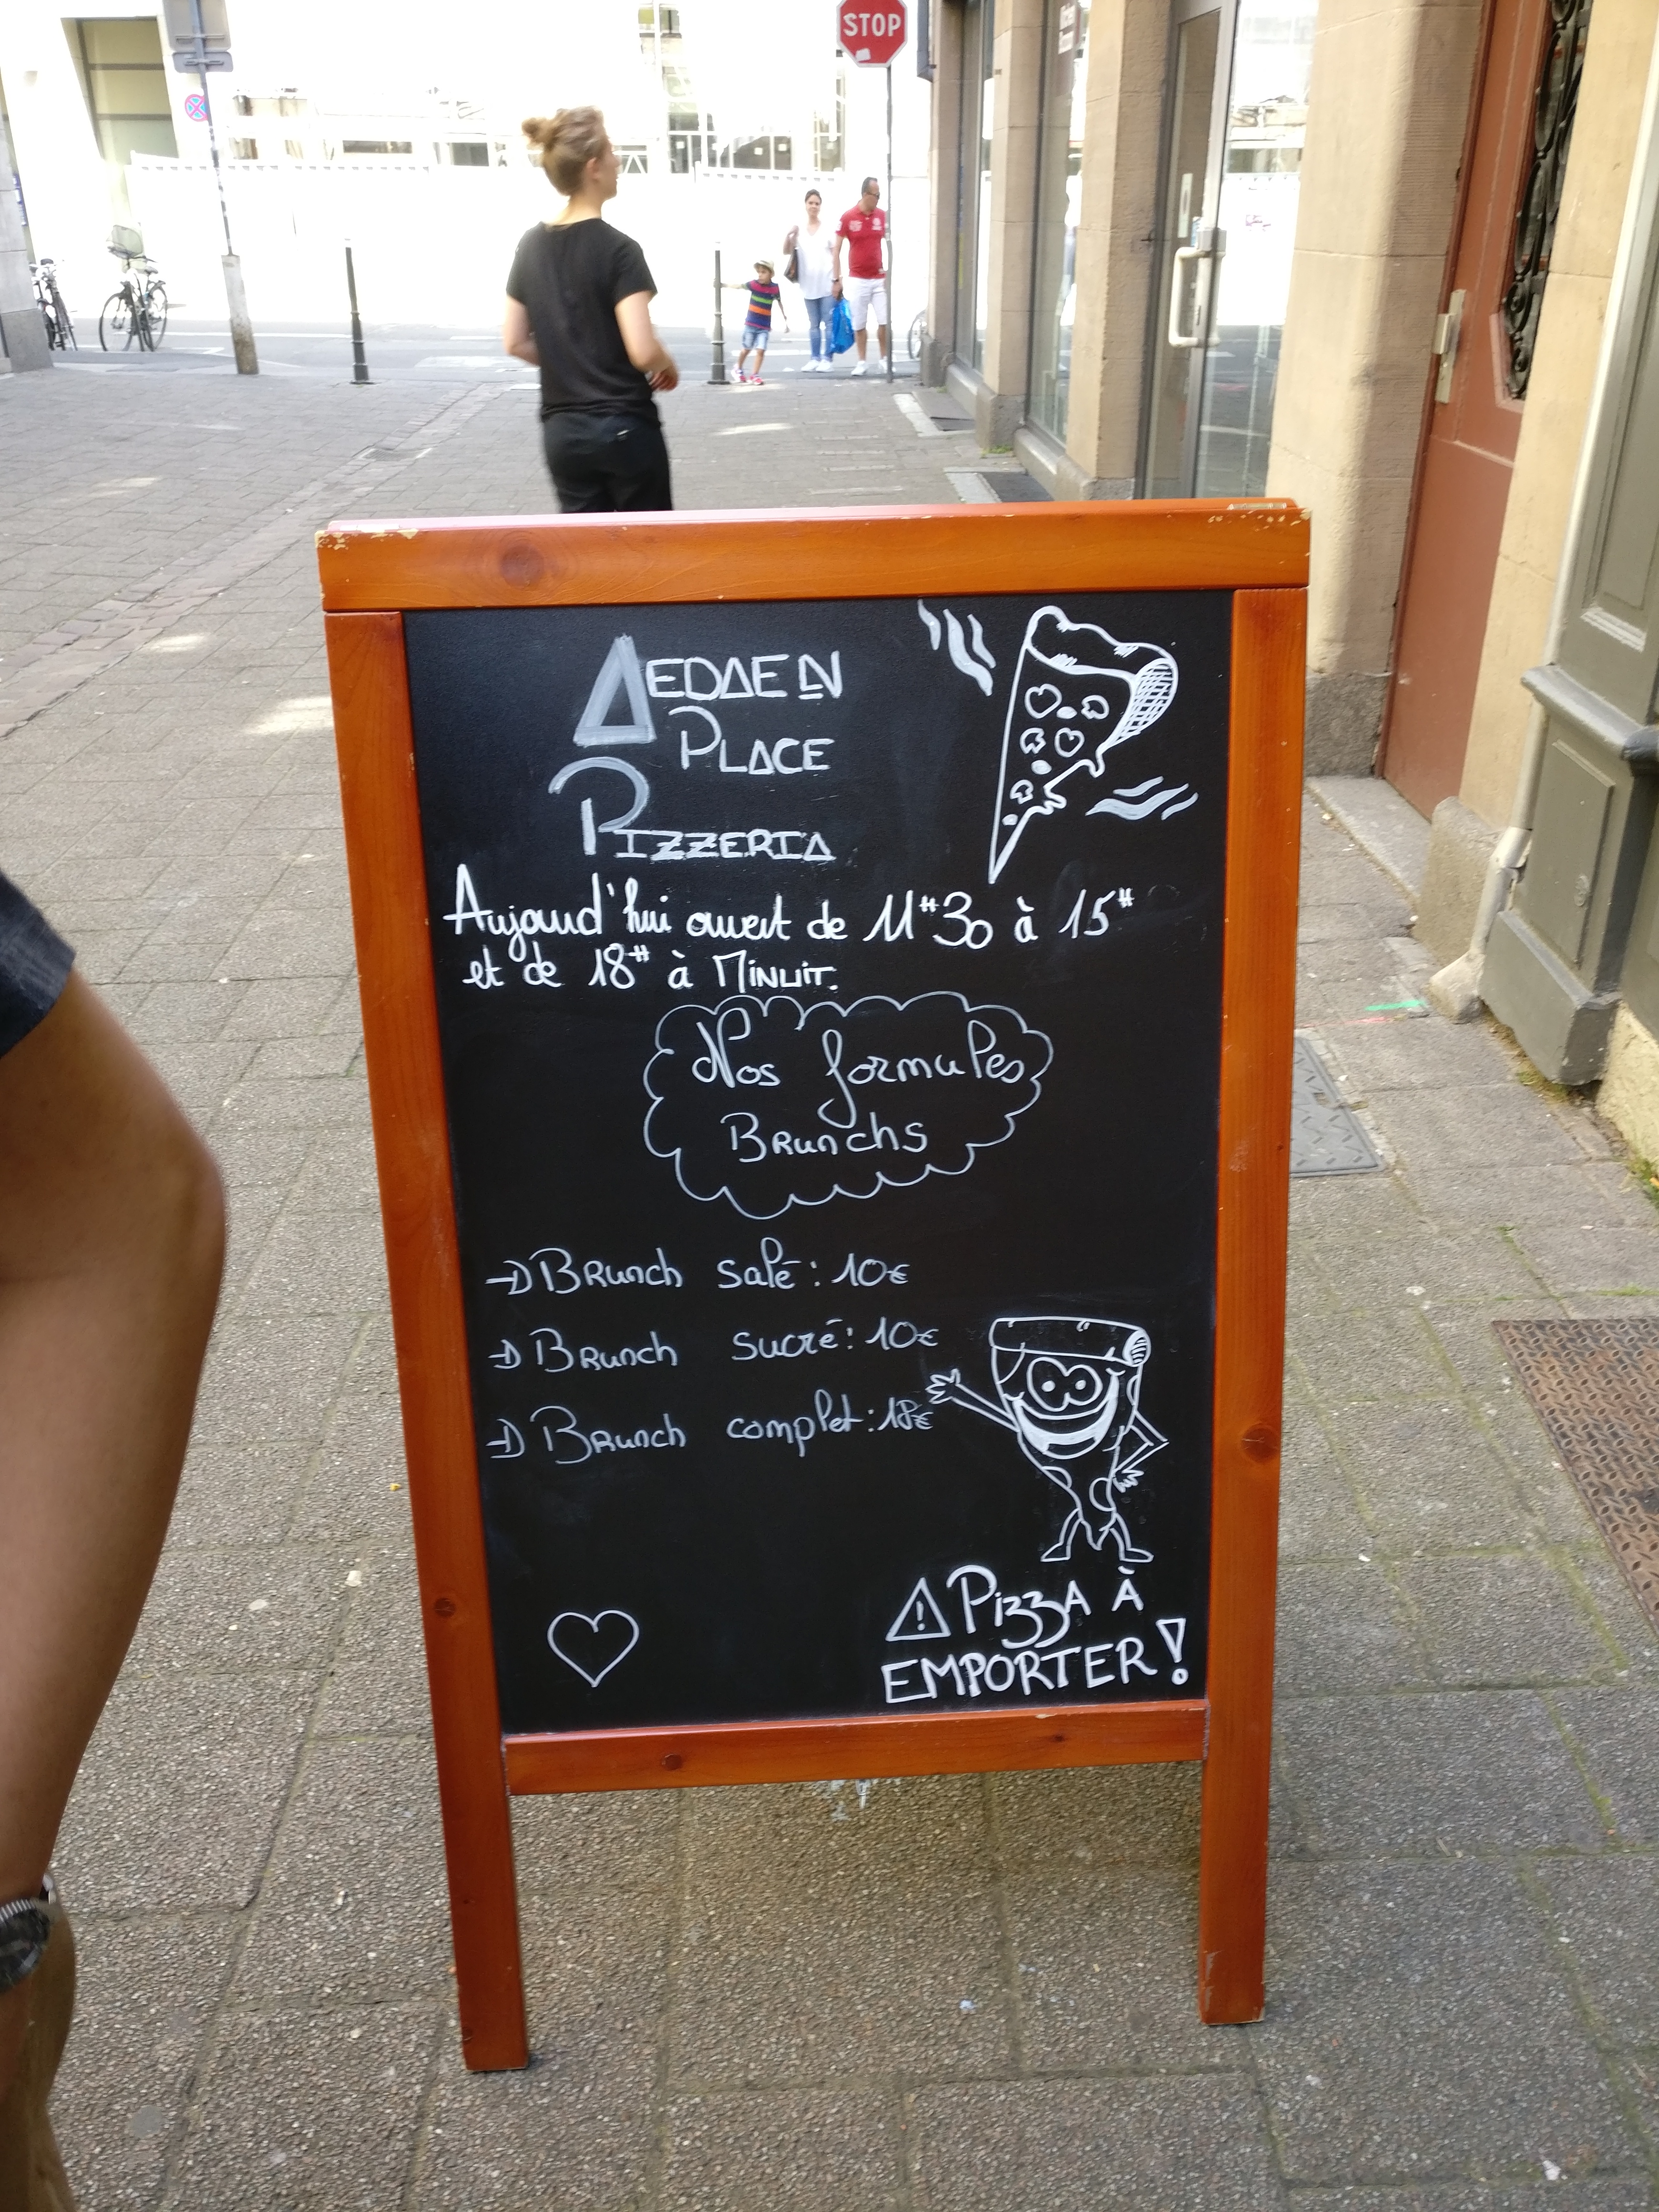 STOP
AEDAEN
PLACE
PIZZERIA
Aujourd'hui ouvert de 11H30 à 15H
et de 18H à MINUIT.
Nos formules
BRunchs
BRunch salé : 10€
BRunch sucré : 10€
BRunch complet : 18€
! PizzA À
EMPORTER !